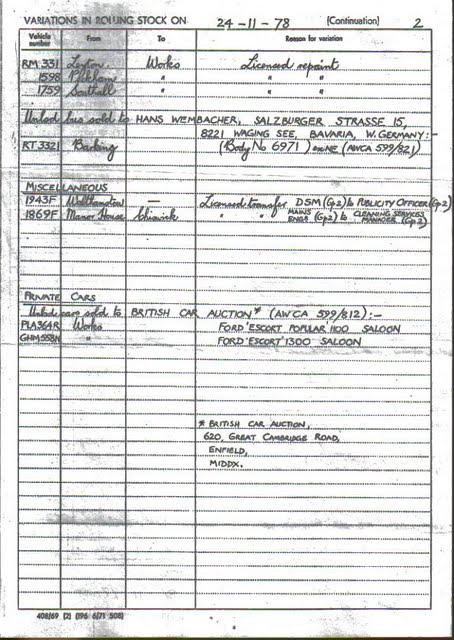 VARIATIONS IN ROLLING STOCK ON 24-11-78 (Continuation) 2
Vehicle number From To Reason for variation
RM 331 Leyton Works Licensed repaint
1598 Peckham " " "
1759 Southall " " "
Unlicd bus sold to HANS WEMBACHER, SALZBURGER STRASSE 15,
8221 WAGING SEE, BAVARIA, W. GERMANY:-
RT 3321 Barking (Body No 6971) (AWCA 599/821)
MISCELLANEOUS
1943F Walthamstow — Licensed transfer DSM (Gp2) to PUBLICITY OFFICER (Gp2)
1869F Manor House Chiswick " " MAINS ENGR (Gp2) to CLEANING SERVICES MANAGER (Gp2)
PRIVATE CARS
Unlicd cars sold to BRITISH CAR AUCTION* (AWCA 599/812):-
PLA364R Works FORD 'ESCORT POPULAR' 1100 SALOON
GHM558N " FORD 'ESCORT' 1300 SALOON
* BRITISH CAR AUCTION,
620, GREAT CAMBRIDGE ROAD,
ENFIELD,
MIDDX.
408/69 (2) (196 6/71 508)